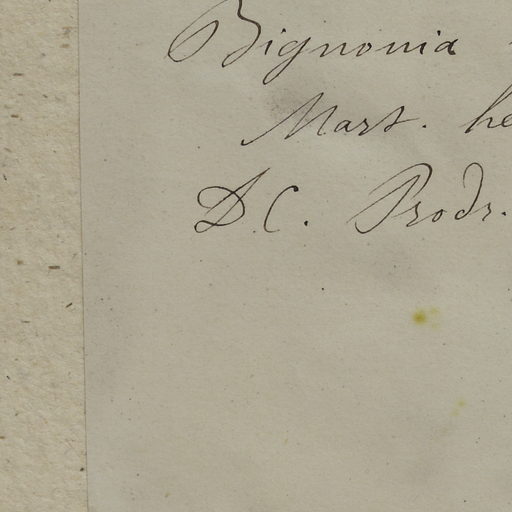 Bignonia
Mart. he
D.C. Prodr.